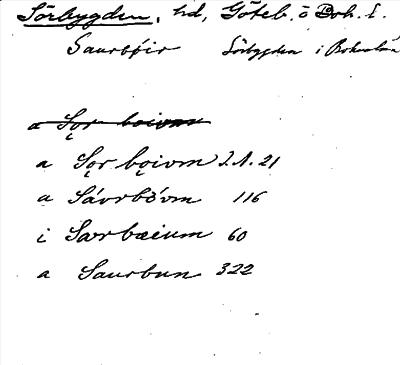 Sörbygden, hd, Göteb. o Boh. l.
Saurbǿir Sörbygden i Bohuslän
a Sǫr boium
a Sǫr bǫium J.A. 21
a Sávrbǿvm 116
i Sørbæium 60
a Saurbun 322